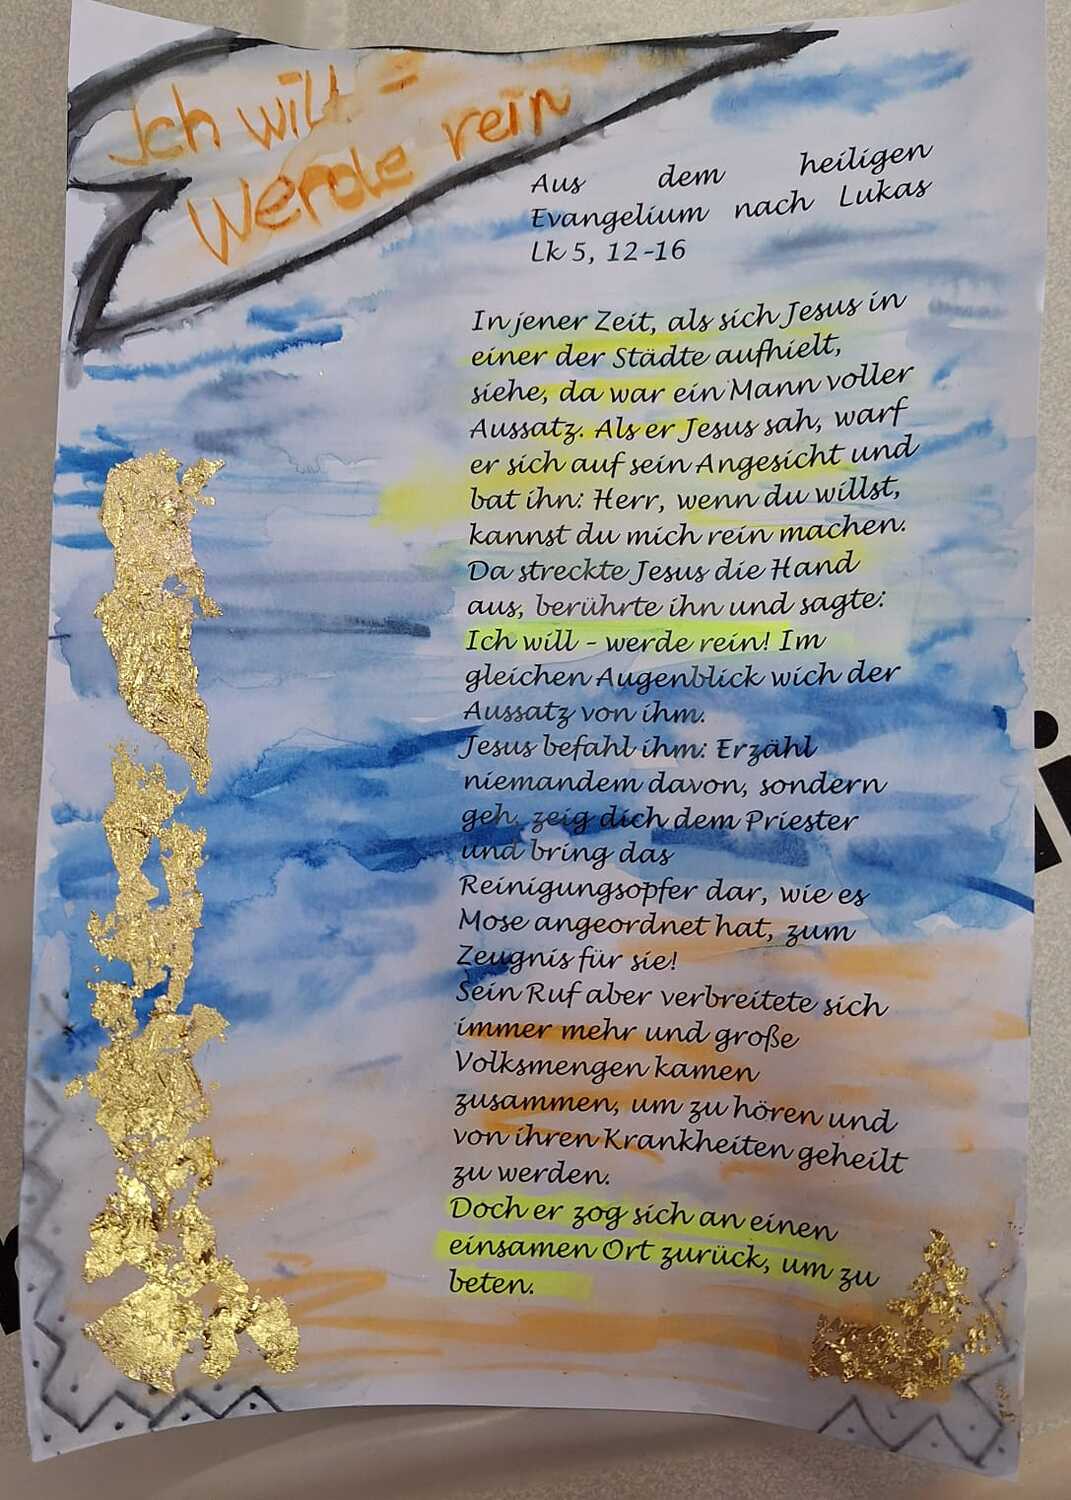 Ich will =
Werde rein
Aus dem heiligen
Evangelium nach Lukas
Lk 5, 12-16
In jener Zeit, als sich Jesus in
einer der Städte aufhielt,
siehe, da war ein Mann voller
Aussatz. Als er Jesus sah, warf
er sich auf sein Angesicht und
bat ihn: Herr, wenn du willst,
kannst du mich rein machen.
Da streckte Jesus die Hand
aus, berührte ihn und sagte:
Ich will - werde rein! Im
gleichen Augenblick wich der
Aussatz von ihm.
Jesus befahl ihm: Erzähl
niemandem davon, sondern
geh, zeig dich dem Priester
und bring das
Reinigungsopfer dar, wie es
Mose angeordnet hat, zum
Zeugnis für sie!
Sein Ruf aber verbreitete sich
immer mehr und große
Volksmengen kamen
zusammen, um zu hören und
von ihren Krankheiten geheilt
zu werden.
Doch er zog sich an einen
einsamen Ort zurück, um zu
beten.